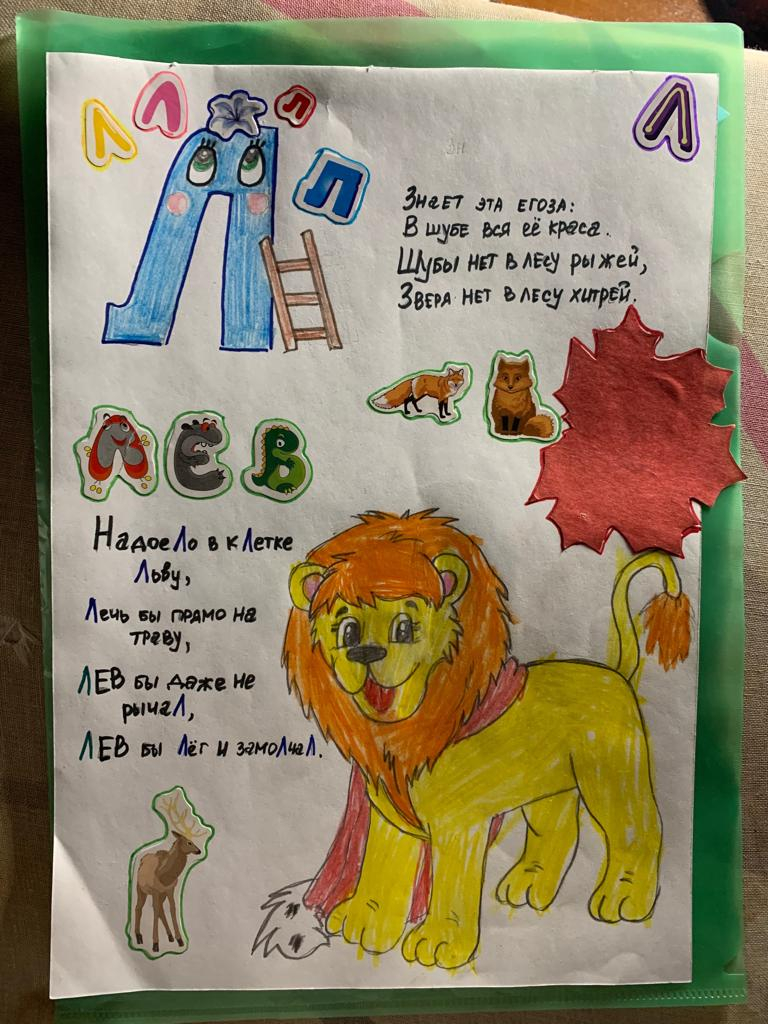 Л
Л
Л
Л
Л
Л
Знает эта егоза:
В шубе вся её краса.
Шубы нет в лесу рыжей,
Звера нет в лесу хитрей.
ЛЕВ
Надоело в клетке
Льву,
Лечь бы прямо на
траву,
ЛЕВ бы даже не
рычал,
ЛЕВ бы лёг и замолчал.